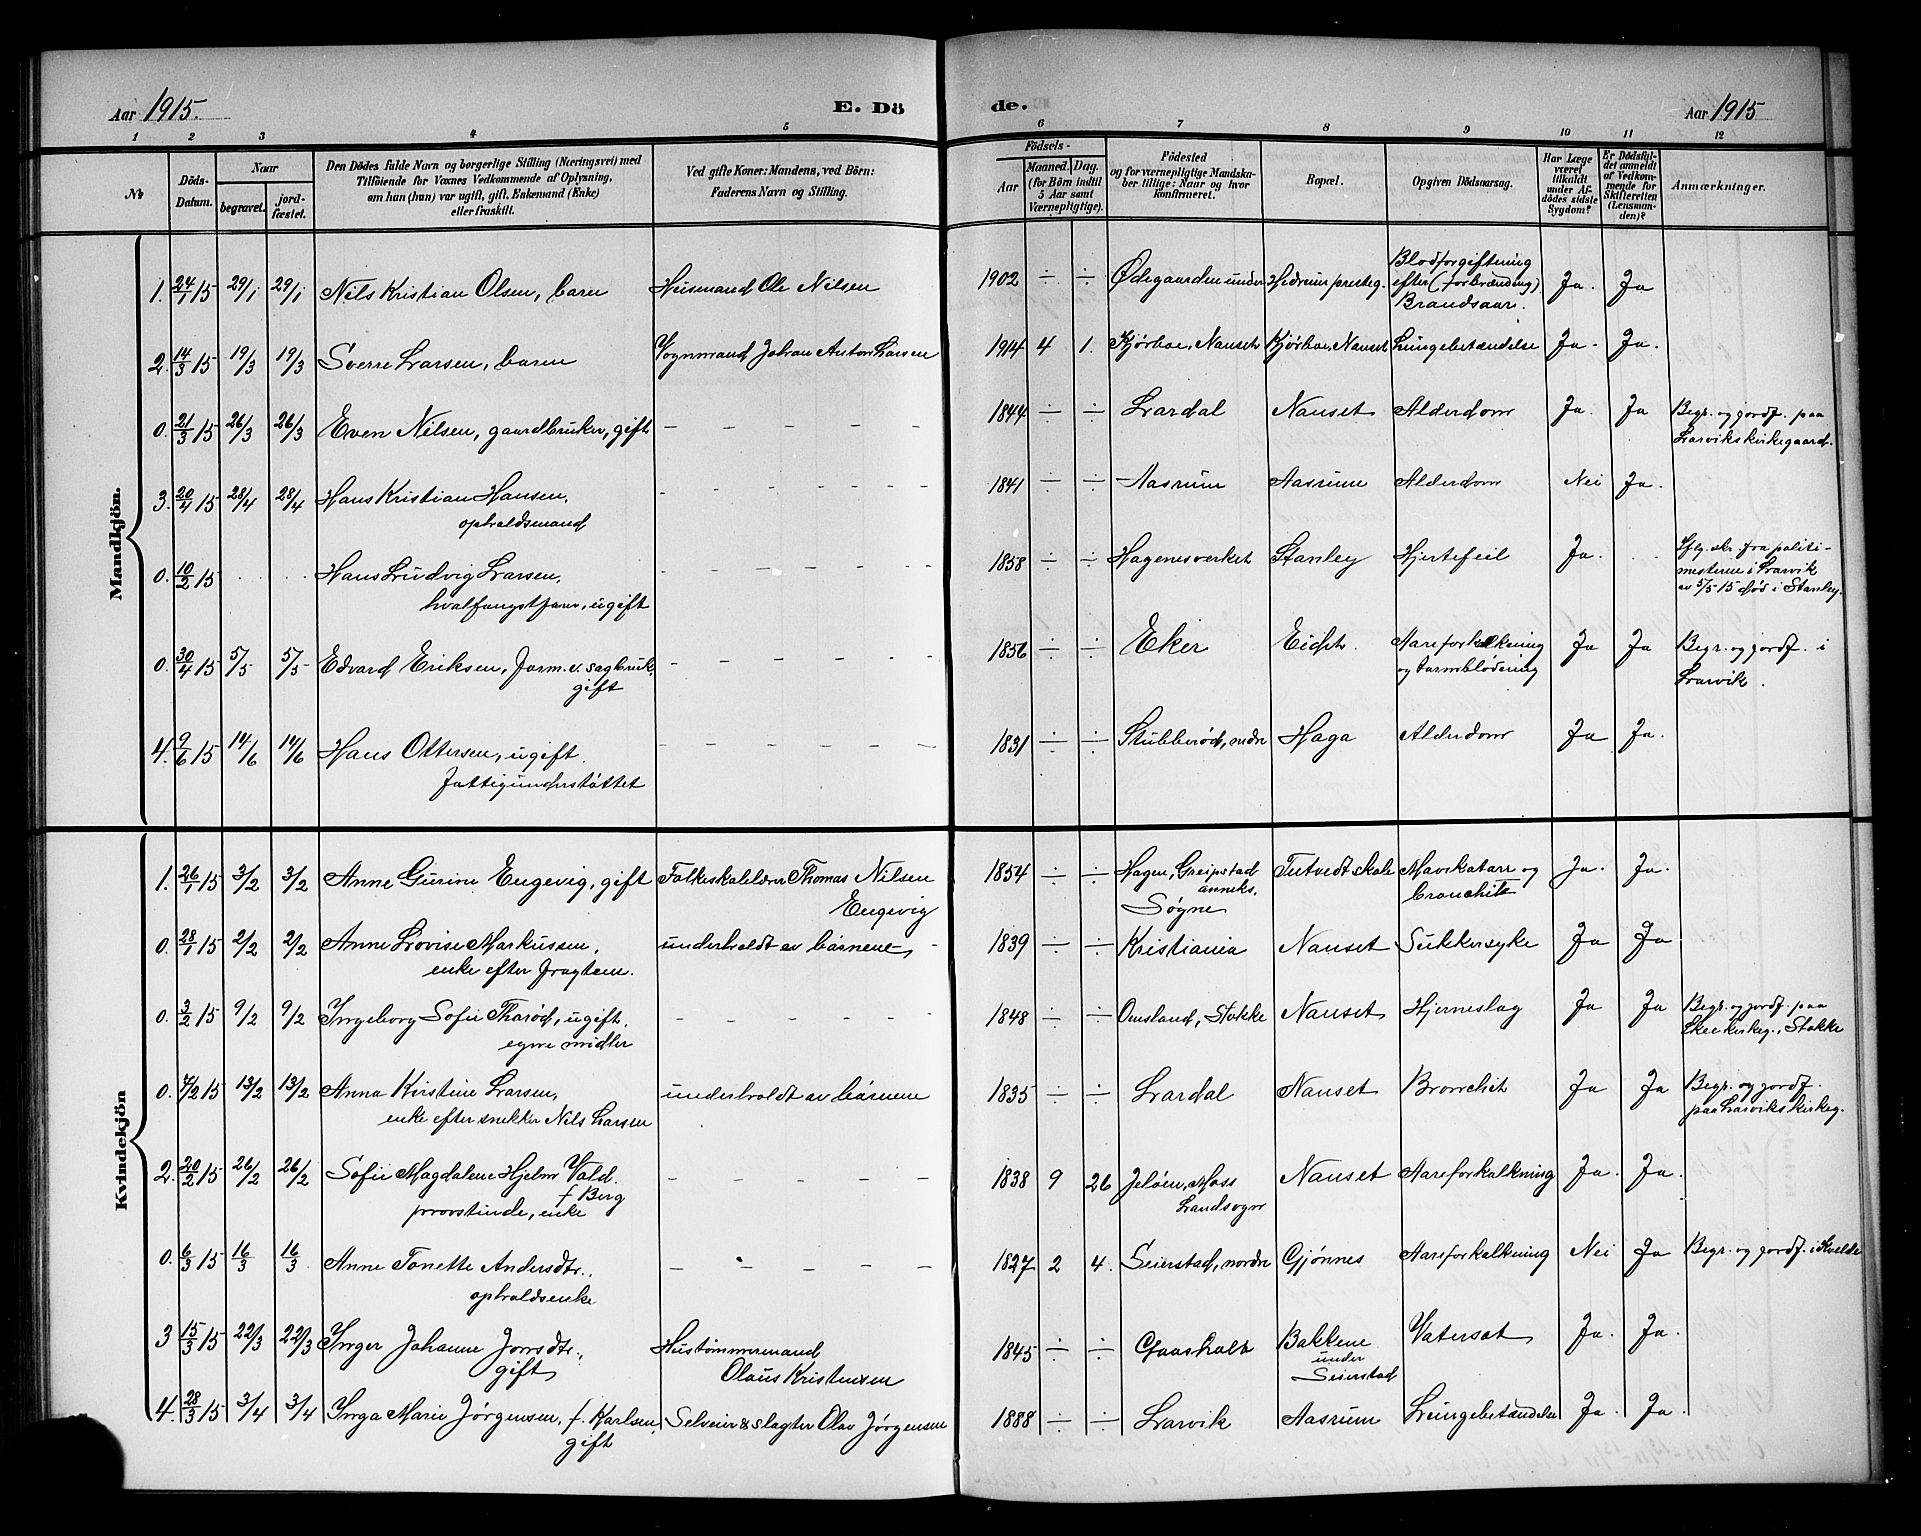 Aar 1915. E. Dö de. Aar 1915
1 2 3 4 5 6 7 8 9 10 11 12
№ Döds-Datum. Naar begravet. jordfæstet. Den Dödes fulde Navn og borgerlige Stilling (Næringsvei) med Tilföiende for Voxnes Vedkommende af Oplysning, om han (hun) var ugift, gift, Enkemand (Enke) eller fraskilt. Ved gifte Koner: Mandens, ved Börn: Faderens Navn og Stilling. Födsels- Aar Maaned. Dag. (for Börn indtil 5 Aar samt Værnepligtige). Födested og for værnepligtige Mandskaber tillige: Naar og hvor konfirmeret. Bopæl. Opgiven Dödsaarsag. Har Læge været tilkaldt under Afdödes sidste Sygdom? Er Dödsfaldet anmeldt af Vedkommende for Skifteretten (Lensmanden)? Anmærkninger.
Mandkjön.
1. 24/1 15 29/1 29/1 Nils Kristian Olsen, barn Husmand Ole Nilsen 1902 ÷ ÷ Ødegaarden under Hedrum presteg. Blodforgiftning
efter (forbrænding)
Brandsaar. Ja. Ja
2. 14/3 15 19/3 19/3 Sverre Larsen, barn Vognmand Johan Anton Larsen 1914 4 1. Kjørboe, Nanset Kjørboe, Nanset Lungebetændelse Ja. Ja.
0. 21/3 15 26/3 26/3 Even Nilsen, gaardbruker, gift – – – – – – 1844 ÷ ÷ Lardal Nanset Alderdom Ja. Ja Begr. og jordf. paa
Larviks kirkegaard.
3. 20/4 15 28/4 28/4 Hans Kristian Hansen, – – – – – – 1841 ÷ ÷ Aasrum Aasrum Alderdom Nei Ja.
opholdsmand
0. 10/2 15 . . . Hans Ludvig Larsen, – – – – – – 1858 ÷ ÷ Hagenesverket Stanley Hjertefeil Ja. . . Iflg. skr. fra politi-
mesteren i Larvik
av 5/5 15 død i Stanley.
hvalfangstform, ugift
0. 30/4 15 5/5 5/5 Edvard Eriksen, form. v. sagbruk, – – – – – – 1856 ÷ ÷ Eker Eidet. Aareforkalkning
og tarmblödning Ja Ja Begr. og jordf. i
Larvik.
gift
4. 9/6 15 14/6 14/6 Hans Ottersen, ugift. – – – – – – 1831 ÷ ÷ Stubberød, nedre Haga Alderdom Ja Ja.
Fattigunderstöttet
Kvindekjön
1. 26/1 15 3/2 3/2 Anne Gurine Engevig, gift Folkeskolelærer Thomas Nilsen
Engevig 1854 ÷ ÷ Hagen, Greipstad
anneks,
Søgne Tutvedt skole Mavekatarr og
bronchit Ja. Ja.
0. 28/1 15 2/2 2/2 Anne Lovise Markussen, underholdt av börnene – 1839 ÷ ÷ Kristiania Nanset Sukkersyke Ja Ja
enke efter fragtem.
0. 3/2 15 9/2 9/2 Ingeborg Sofie Tharød, ugift, – – – – – – 1848 ÷ ÷ Omsland, Stokke Nanset Hjerneslag Ja Ja Begr. og jordf. paa
Skee kirkeg., Stokke
egne midler
0. 7/2 15 13/2 13/2 Anna Kirstine Larsen, underholdt av börnene 1835 ÷ ÷ Lardal Nanset Bronchit Ja Ja Begr. og jordf.
paa Larviks kirkeg.
enke efter snekker Nils Larsen
2. 20/2 15 26/2 26/2 Sofie Magdalene Hjelm Vold. – – – – – – 1838 9 26 Jeløen, Moss
Landsogn Nanset Aareforkalkning Ja. Ja.
f. Berg
provstinde, enke
0. 6/3 15 16/3 16/3 Anne Tonette Andersdtr., – – – – – – 1827 2 4. Seierstad, nordre Gjønnes Aareforkalkning Nei Ja Begr. og jordf. i Kvelde
opholdsenke
3 15/3 15 22/3 22/3 Inger Johanne Jonsdtr., Hustömmermand
Olaus Kristensen 1845 ÷ ÷ Gaasholt Bakkene
under
Seierstad Vatersot Ja. Ja.
gift
4. 28/3 15 3/4 3/4 Inga Marie Jørgensen, f. Karlsen, Selveier & slagter Olav Jørgensen 1888 ÷ ÷ Larvik Aasrum Lungebetændelse Ja. Ja.
gift